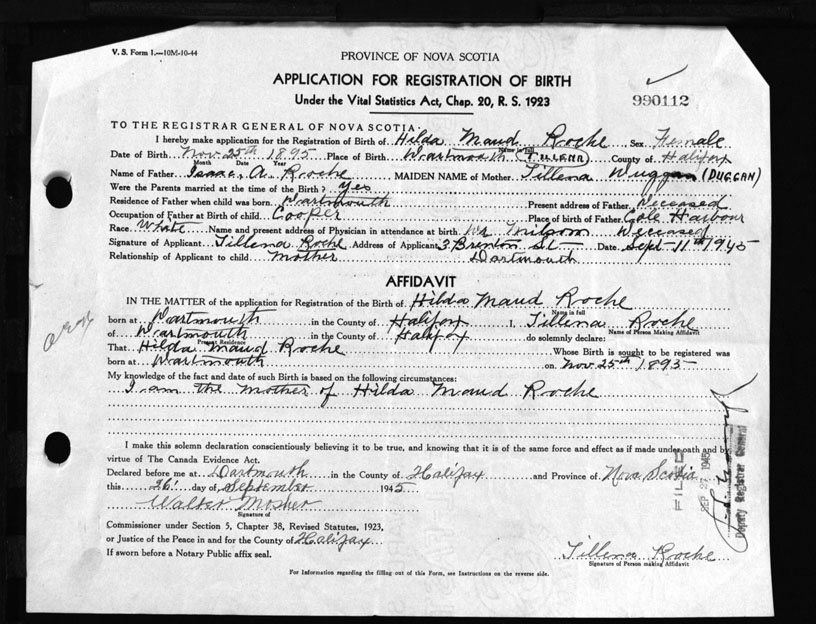 V. S. Form 1.—10M-10-44
PROVINCE OF NOVA SCOTIA
APPLICATION FOR REGISTRATION OF BIRTH
Under the Vital Statistics Act, Chap. 20, R. S. 1923
990112
TO THE REGISTRAR GENERAL OF NOVA SCOTIA:
I hereby make application for the Registration of Birth of Hilda Maud Roche Sex Female
Name in full
Date of Birth Nov. 25th 1895 Place of Birth Dartmouth (TILLENA) County of Halifax
Month Date Year
Name of Father Isaac A. Roche MAIDEN NAME of Mother Tillena Duggan (DUGGAN)
Were the Parents married at the time of the Birth? Yes
Residence of Father when child was born Dartmouth Present address of Father Deceased
Occupation of Father at Birth of child Cooper Place of birth of Father Cole Harbour
Race White Name and present address of Physician in attendance at birth Deceased
Signature of Applicant Tillena Roche Address of Applicant 3 Brenton St Date Sept 11th 1945
Relationship of Applicant to child Mother Dartmouth
AFFIDAVIT
IN THE MATTER of the application for Registration of the Birth of Hilda Maud Roche
Name in full
born at Dartmouth in the County of Halifax I, Tillena Roche
Name of Person Making Affidavit
of Dartmouth in the County of Halifax do solemnly declare:
Present Residence
That Hilda Maud Roche Whose Birth is sought to be registered was
born at Dartmouth on Nov. 25th 1895
My knowledge of the fact and date of such Birth is based on the following circumstances:
I am the Mother of Hilda Maud Roche
I make this solemn declaration conscientiously believing it to be true, and knowing that it is of the same force and effect as if made under oath and by
virtue of The Canada Evidence Act.
Declared before me at Dartmouth in the County of Halifax and Province of Nova Scotia
this 26 day of September 1945
Walter Mosher
Signature of
Commissioner under Section 5, Chapter 38, Revised Statutes, 1923,
or Justice of the Peace in and for the County of Halifax
If sworn before a Notary Public affix seal.
Tillena Roche
Signature of Person making Affidavit
For Information regarding the filling out of this Form, see Instructions on the reverse side.
FILED
SEP 27 1945
Deputy Registrar General